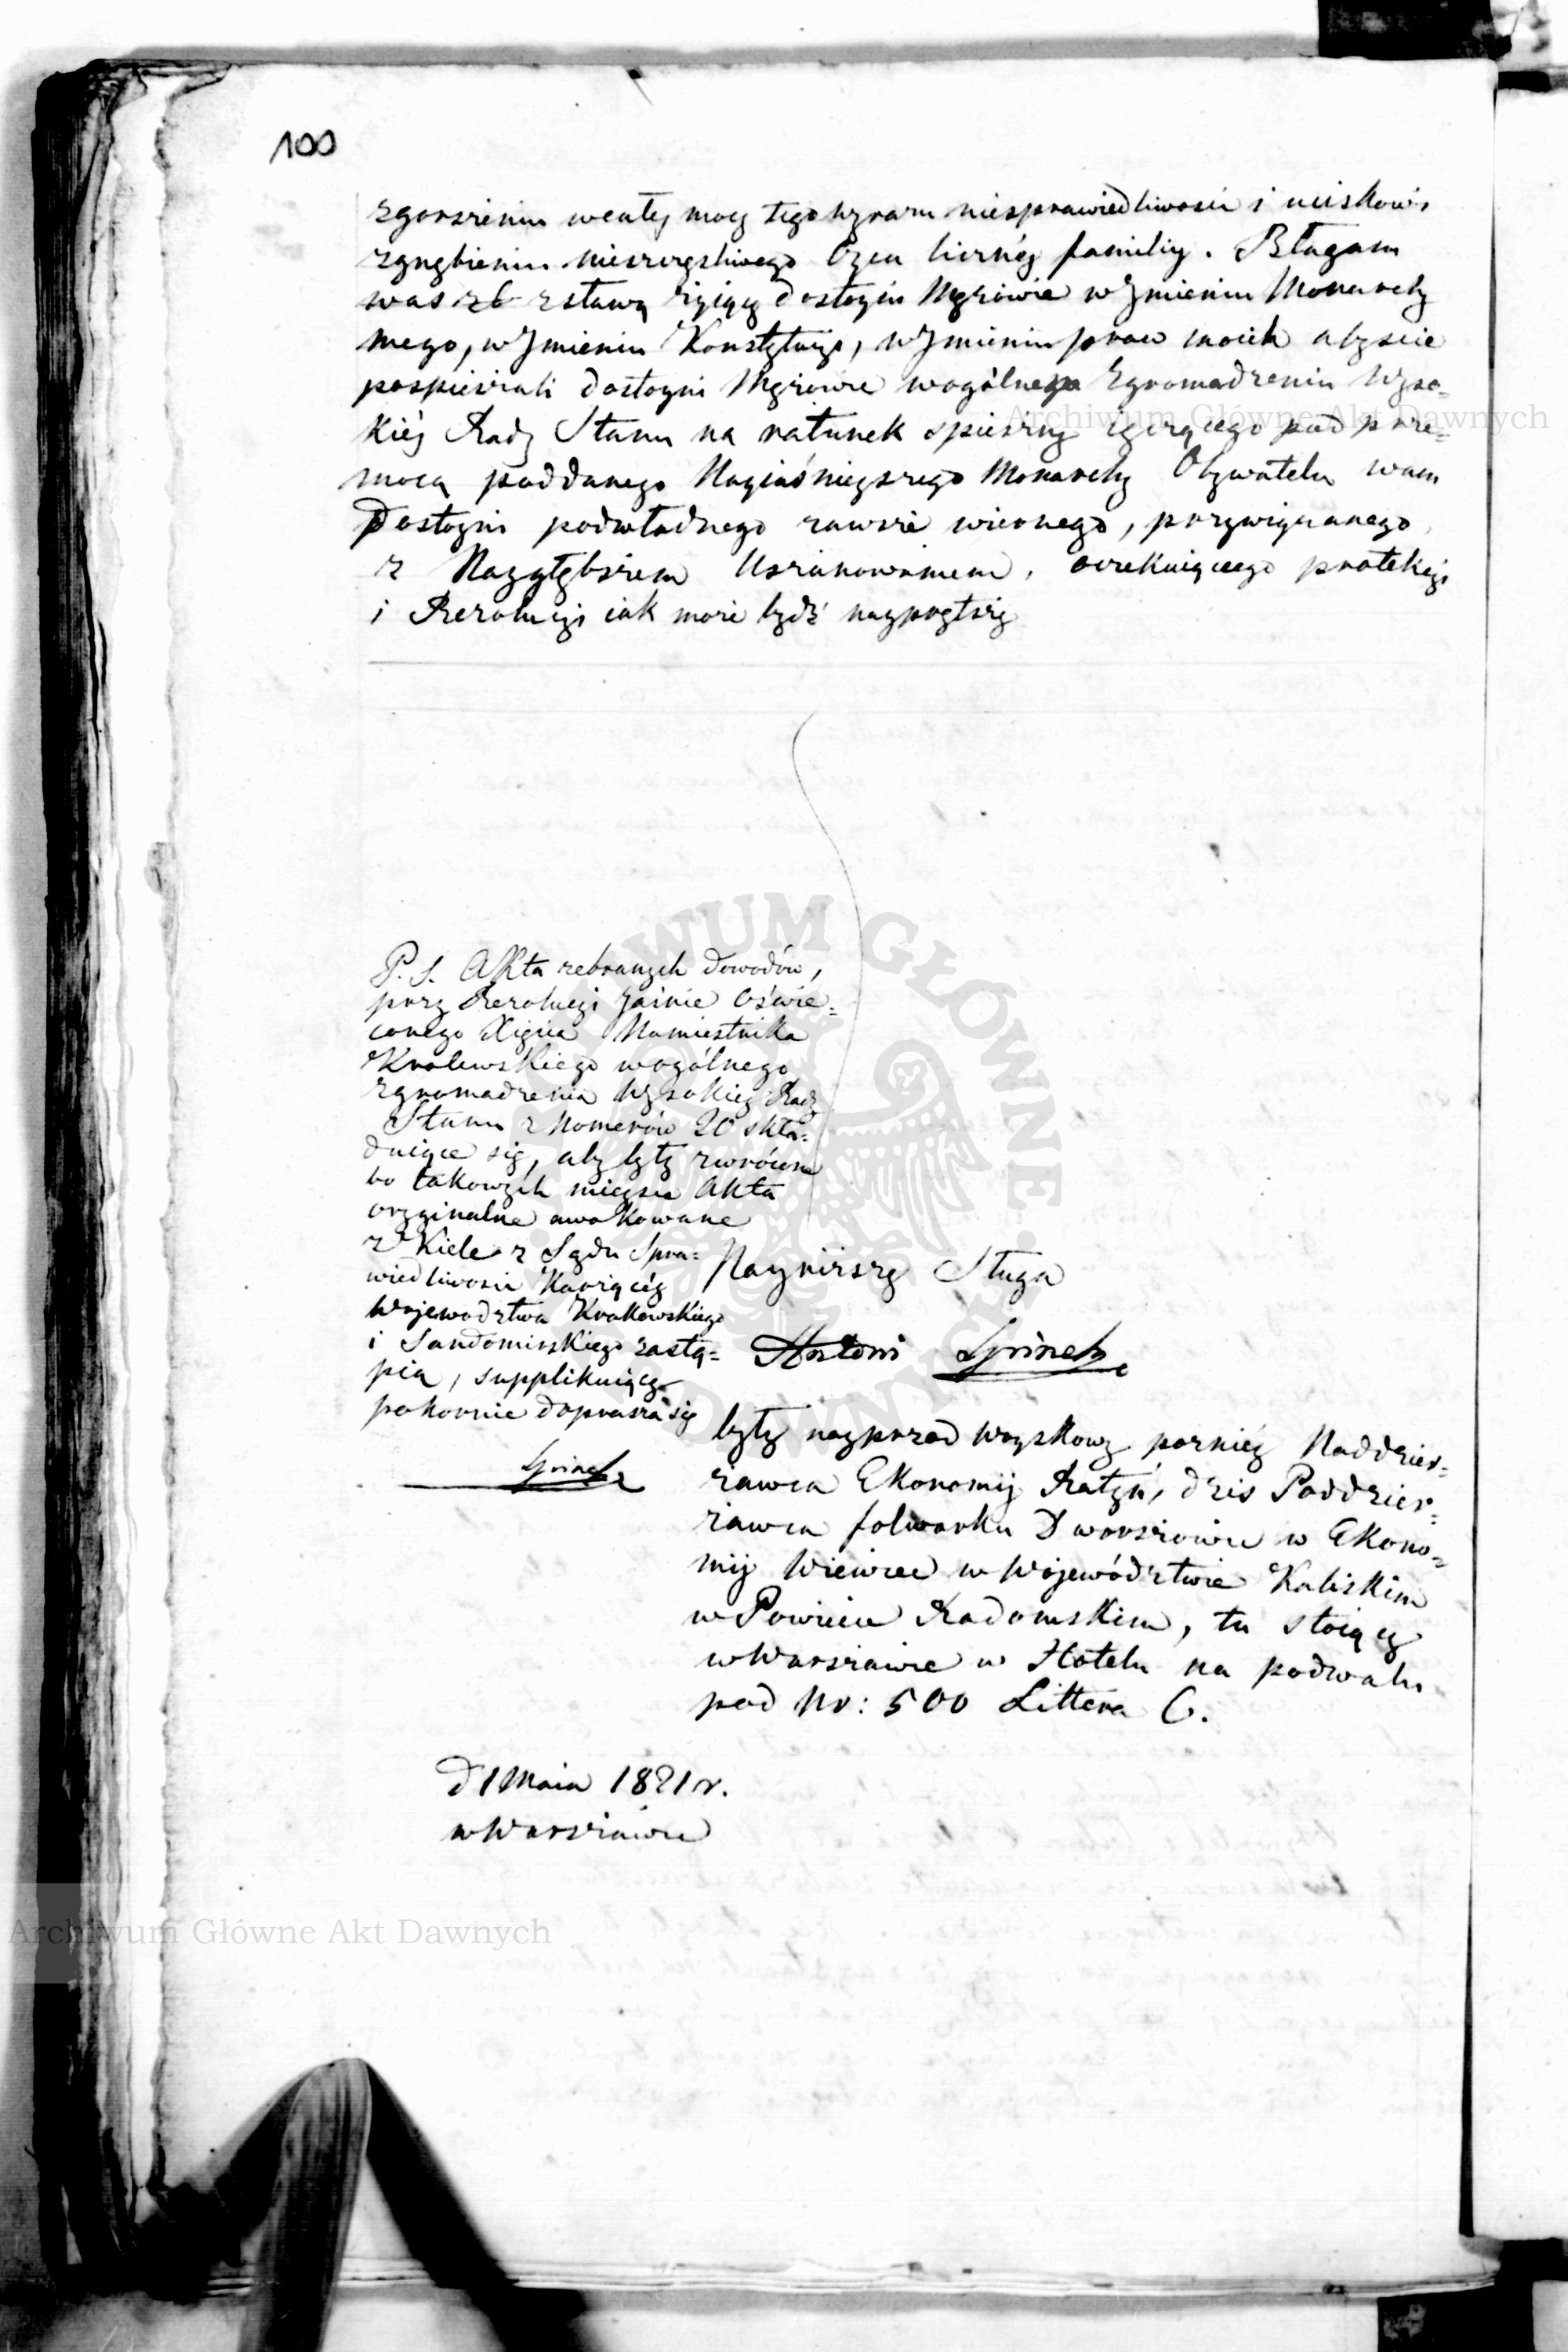 100
zgorszeniu wcałej mocy tego wyrazu niesprawiedliwości i uciskowi
zgnębieniu nieszczęśliwego Oyca liczney familiy. Błagam
was z sławą żyiący dostoyni Mężowie w Jmieniu Monarchy
mego, w Jmieniu Konstytucyi, w Jmieniu praw moich abyscie
pospieszali dostoyni Mężowie wogólnego Zgromadzeniu Wyso=
kiéy Rady Stanu na ratunek spieszny ięczącego pod prze=
mocą poddanego Nayiaśnieyszego Monarchy Obywatela wam
Dostoyni podwładnego zawsze wiernego, przywiązanego
z Naygłębszem Uszanowaniem, oczekuiącego protekcyi
i Rezolucyi iak może bydź nayprętszéy
P. S. Akta zebranych dowodów,
przy Rezolucyi Jaśnie Oświe=
conego Xięcia Namiestnika
Krolewskiego wogólnego
zgromadzenia Wysokiey Rady
Stanu z Nomerów 20 skła=
daiące się, aby były zwrócone
bo takowych mieysce Akta
oryginalne awokowane
z Kielc z Sądu Spra=
wiedliwości Karzącéy
Województwa Krakowskiego
i Sandomirskiego zastą=
pią, supplikuiący
pokornie doprasza się
Nayniższy Sługa
Antoni
były nayprzod woyskowy pozniéy Naddzier=
żawca Ekonomij Ratyń, dzis Poddzier=
żawca folwarku Dworszowice w Ekono=
mij Wiewiec w Województwie Kaliskim
w Powiecie Radomskim, tu stoiący
w Warszawie w Hotelu na podwalu
pod Nr: 500 Littera C.
d 1 Maia 1821 r.
w Warszawie
Archiwum Główne Akt Dawnych
Archiwum Główne Akt Dawnych
ARCHIWUM GŁÓWNE AKT DAWNYCH